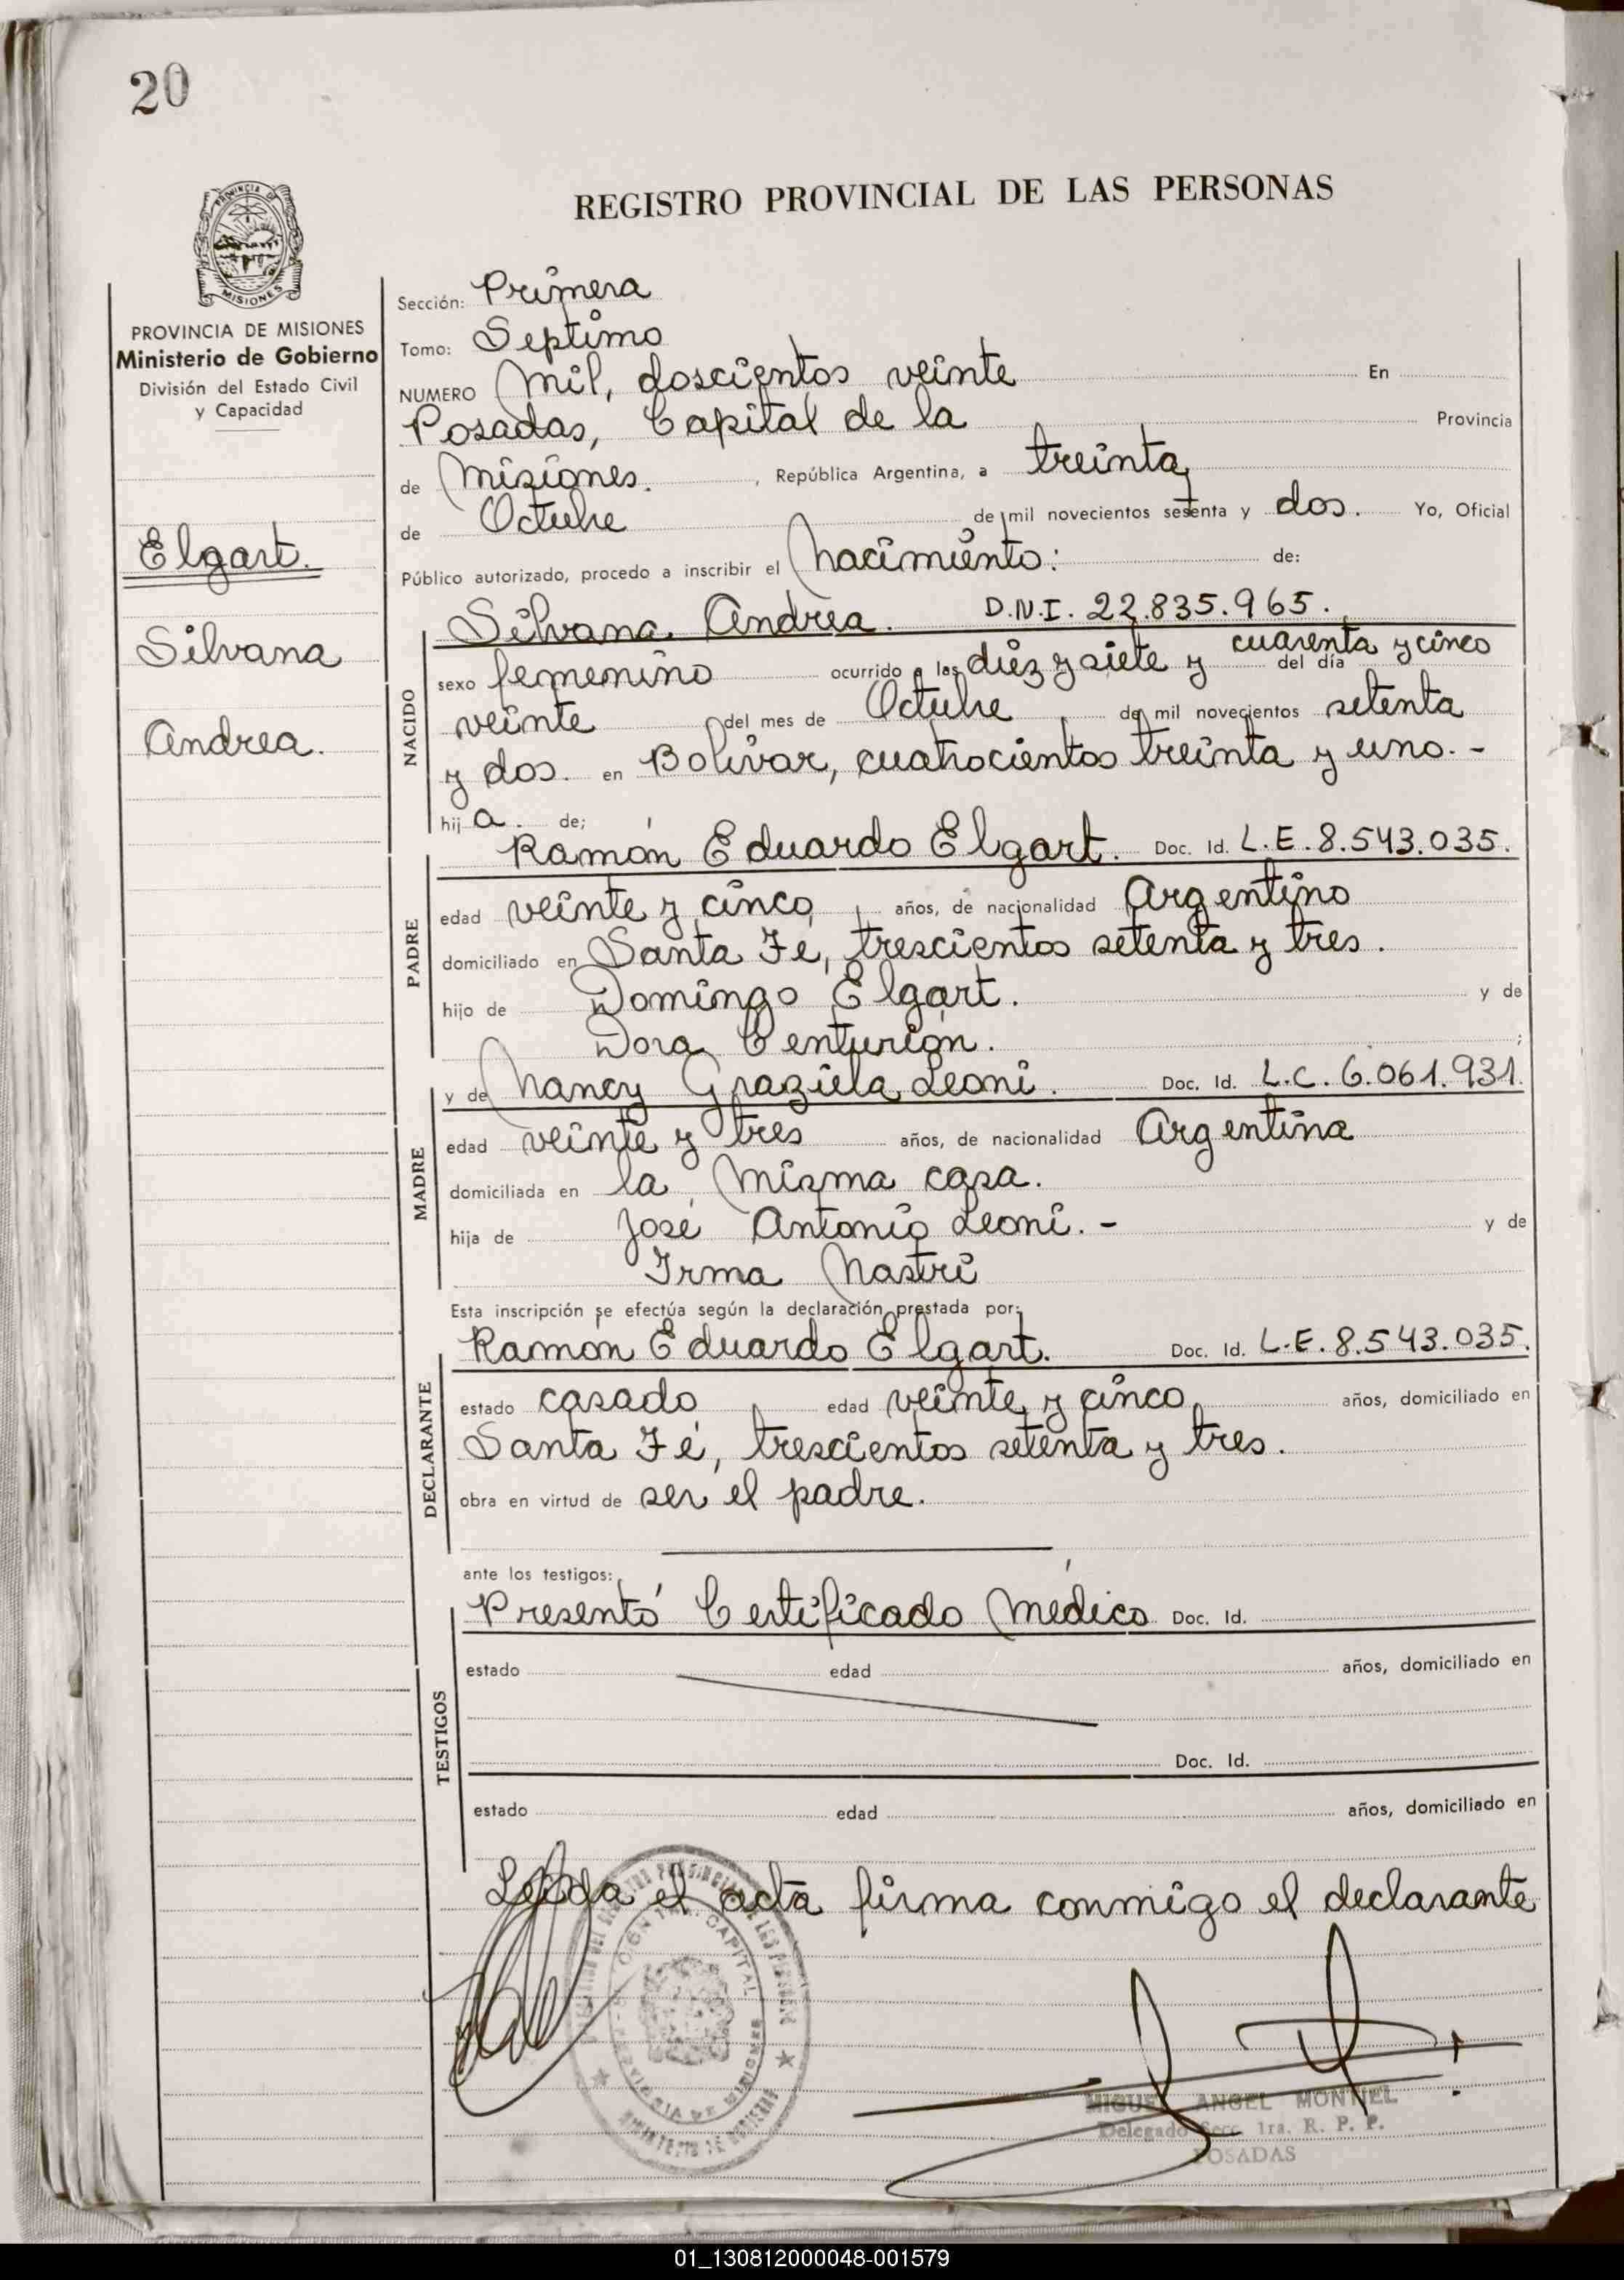 20
REGISTRO PROVINCIAL DE LAS PERSONAS
PROVINCIA DE
MISIONES
PROVINCIA DE MISIONES
Ministerio de Gobierno
División del Estado Civil
y Capacidad
Elgart.
Silvana
Andrea.
Sección: Primera
Tomo: Septimo
NUMERO Mil, doscientos veinte En
Posadas, Capital de la Provincia
de Misiones. , República Argentina, a treinta
de Octubre de mil novecientos sesenta y dos. Yo, Oficial
Público autorizado, procedo a inscribir el Nacimiento: de:
Silvana Andrea. D.N.I. 22.835.965.
NACIDO
sexo femenino ocurrido a las diez y siete y cuarenta y cinco del día
veinte del mes de Octubre de mil novecientos setenta
y dos. en Bolívar, cuatrocientos treinta y uno. -
hij a. de;
PADRE
Ramón Eduardo Elgart. Doc. Id. L.E. 8.543.035.
edad veinte y cinco años, de nacionalidad Argentino
domiciliado en Santa Fé, trescientos setenta y tres.
hijo de Domingo Elgart. y de
Dora Centurión. ;
MADRE
y de Nancy Graziela Leoni. Doc. Id. L.C. 6.061.931.
edad veinte y tres años, de nacionalidad Argentina
domiciliada en la misma casa.
hija de José Antonio Leoni. - y de
Irma Nastri
Esta inscripción se efectúa según la declaración prestada por:
DECLARANTE
Ramon Eduardo Elgart. Doc. Id. L.E. 8.543.035.
estado casado edad veinte y cinco años, domiciliado en
Santa Fé, trescientos setenta y tres.
obra en virtud de ser el padre.
ante los testigos:
TESTIGOS
Presentó Certificado Médico Doc. Id.
estado edad años, domiciliado en
Doc. Id.
estado edad años, domiciliado en
Leida el acta firma conmigo el declarante
CAPITAL
MIGUEL ANGEL MONTIEL
Delegado Secc. 1ra. R. P. P.
POSADAS
01_130812000048-001579